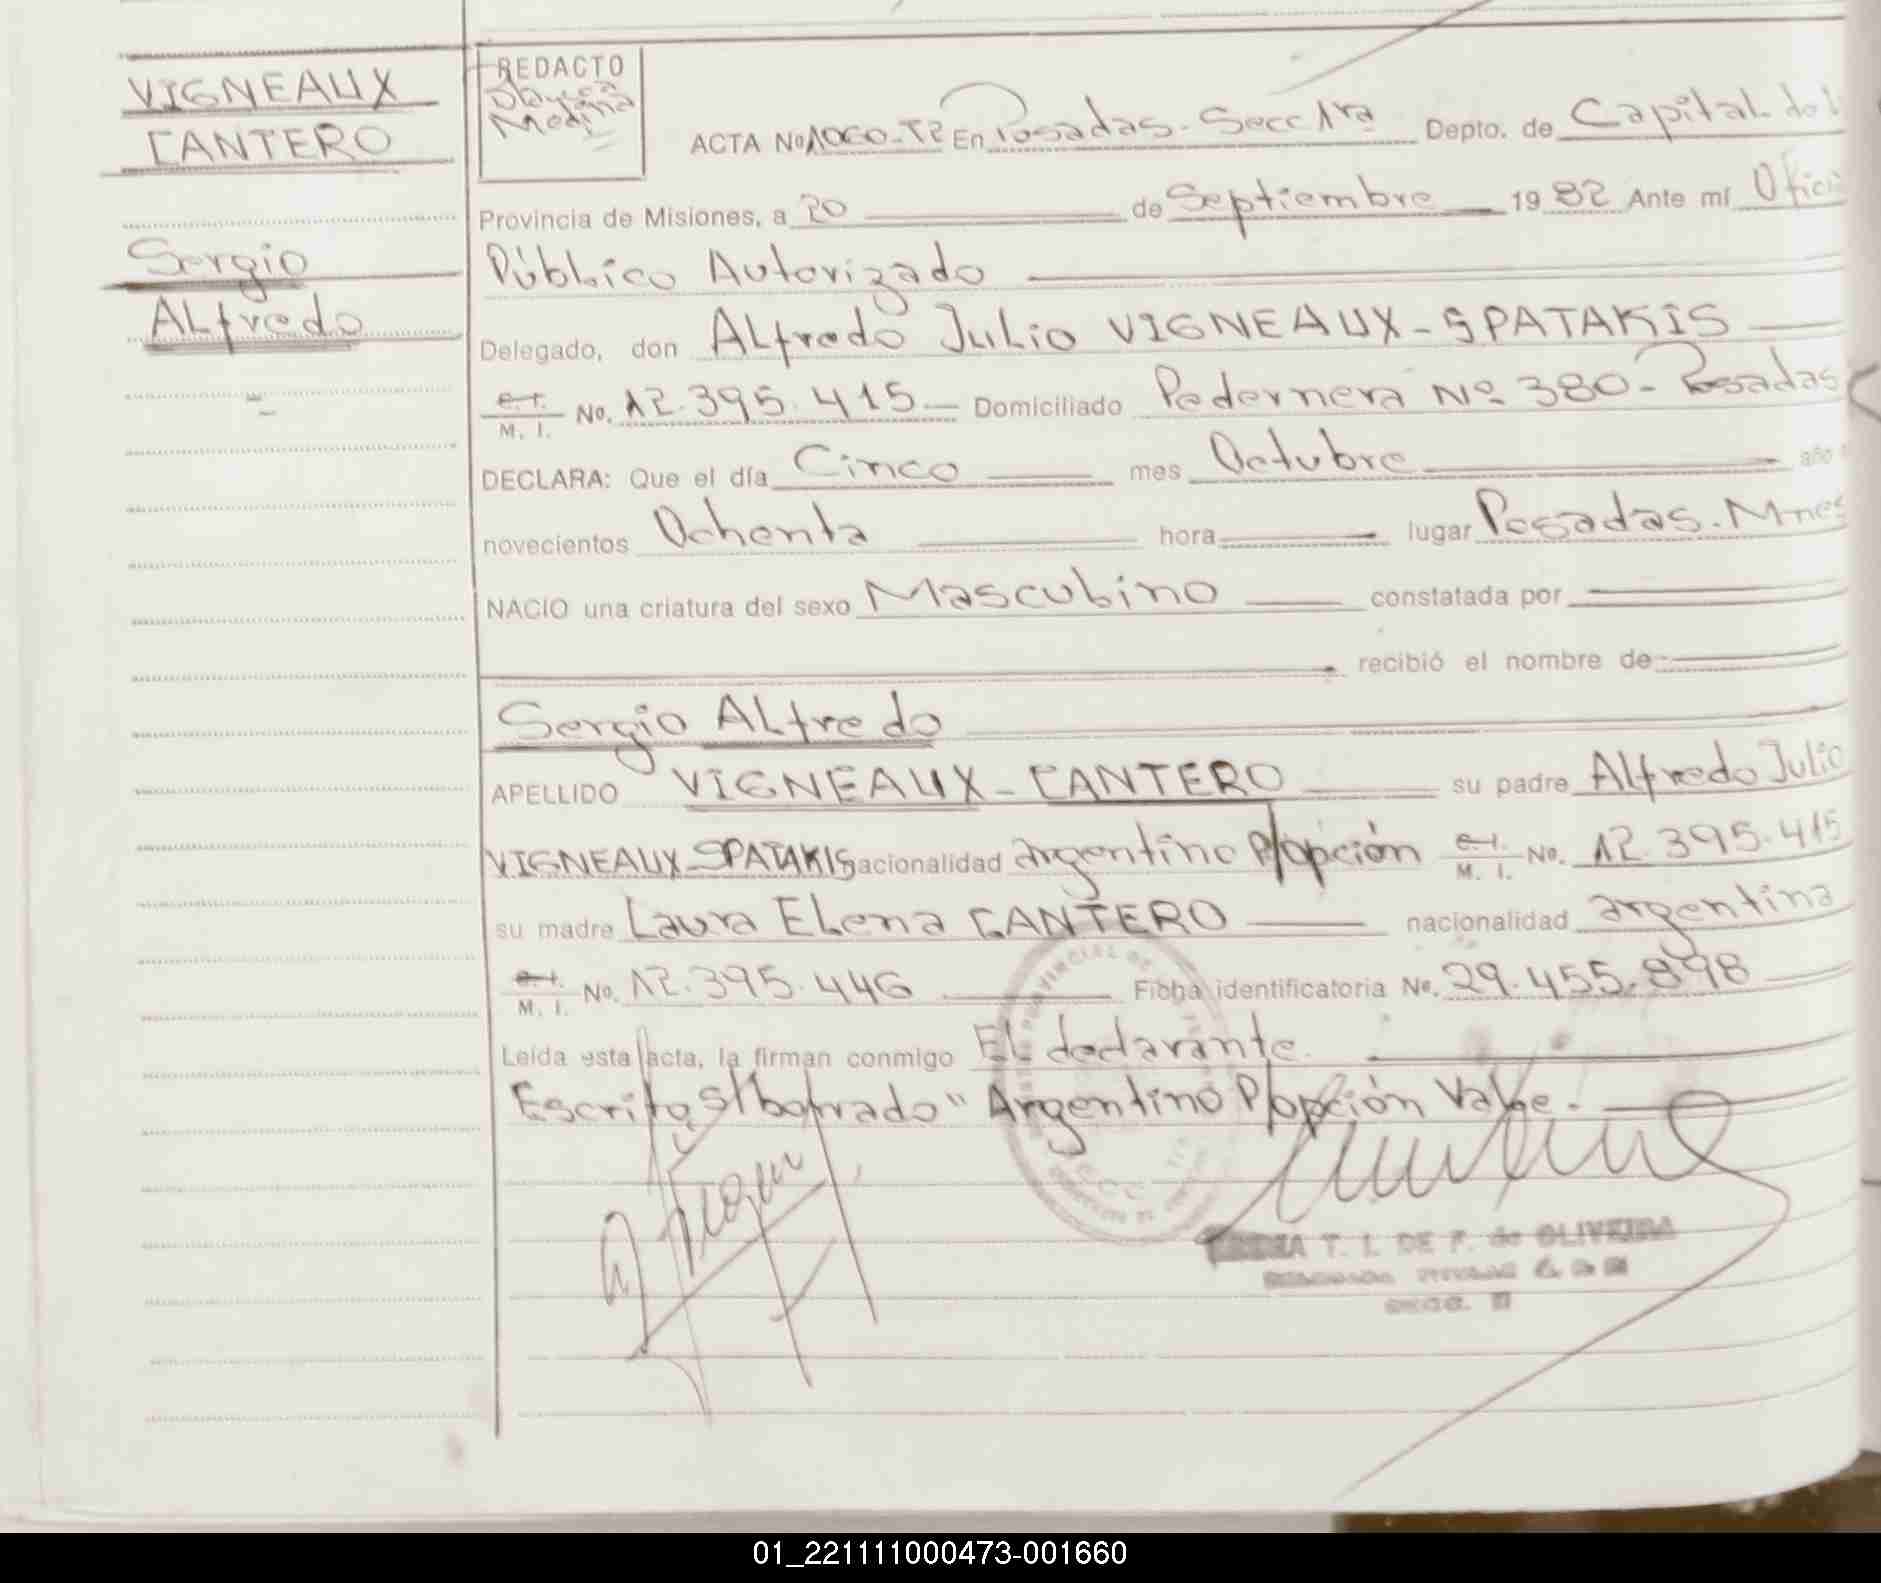 VIGNEAUX
CANTERO
Sergio
ALfredo
REDACTO
Medina
ACTA No 1060-T2 En Posadas. Secc 1ra Depto. de Capital. del
Provincia de Misiones, a 20 de Septiembre 1982 Ante mí Ofici
Público Autorizado
Delegado, don ALfredo Julio VIGNEAUX-SPATAKIS
C.I. M. I. No. 12.395.415.- Domiciliado Pedernera Nº 380- Posadas
DECLARA: Que el día Cinco mes Octubre año
novecientos Ochenta hora lugar Posadas. Mnes
NACIO una criatura del sexo Masculino constatada por
recibió el nombre de
Sergio ALfredo
APELLIDO VIGNEAUX - CANTERO su padre Alfredo Julio
VIGNEAUX-SPATAKIS nacionalidad argentino P/opción C.I. M. I. No. 12.395.415
su madre Laura ELena CANTERO nacionalidad argentina
C.I. M. I. No. 12.395.446 Ficha identificatoria No. 29.455.898
Leída esta acta, la firman conmigo EL declarante.
Escrito s/borrado "Argentino P/opción Vale.-
T. I. DE F. de OLIVEIRA
01_221111000473-001660